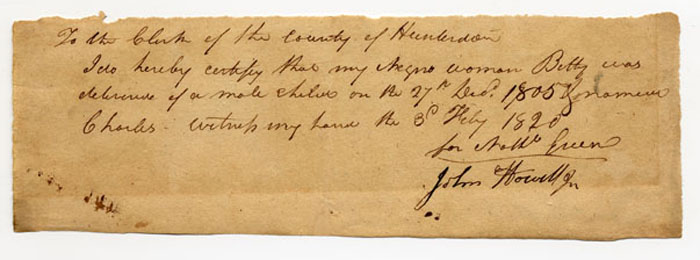 To the Clerk of the County of Hunterdon
I do hereby certify that my Negro woman Betty was
delivered of a male child on the 27th Decr. 1805 & named
Charles - witness my hand the 3d Feby 1820
for Green
John Howell Jr